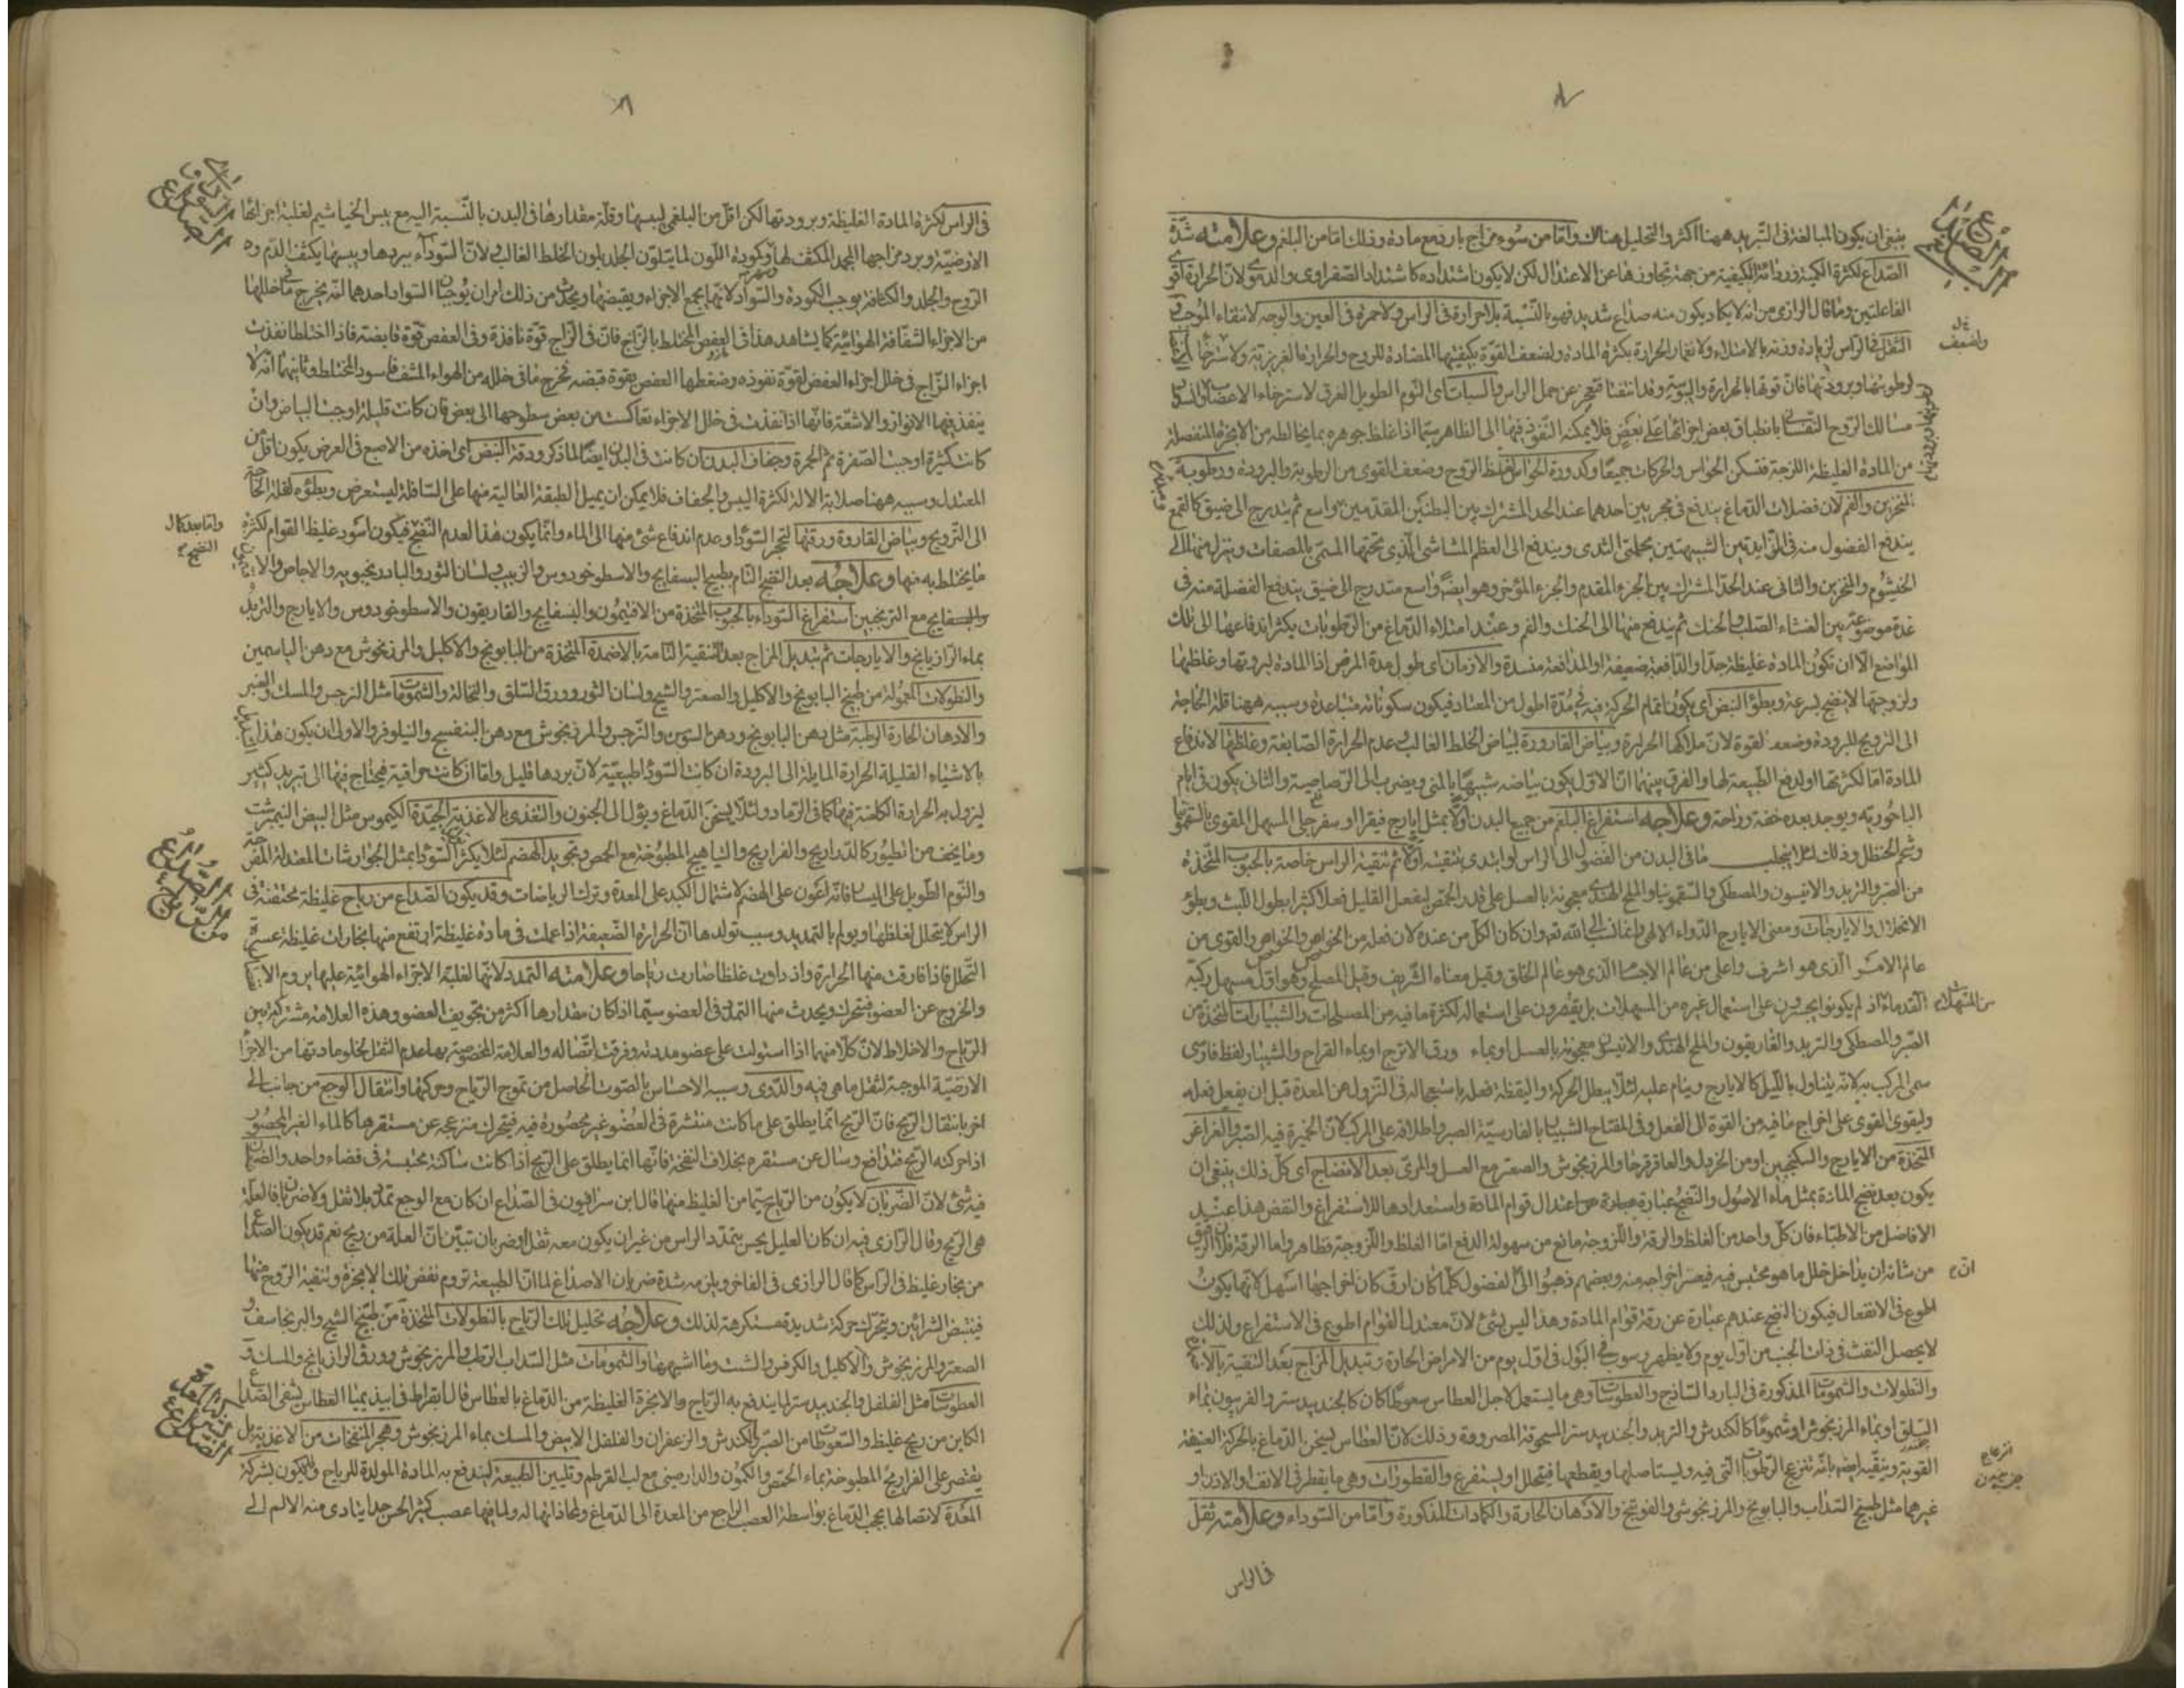 الصداع البلغمي
ينبغي ان يكون المبالغة في التبريد ههنا اكثر والتحليل هناك واما من سوء مزاج بارد مع مادة وذلك اما من البلغم وعلامته شدة
الصداع لكثرة الكمية ورداءة الكيفية من جهة تجاوزها عن الاعتدال لكن لا يكون اشتداده كاشتداد الصفراوى والدموى لان الحرارة اقوى
الفاعلتين وما قال الرازى من انه لا يكاد يكون منه صداع شديد فهو بالنسبة بلا حرارة فى الراس ولا حمرة فى العين والوجه لانتفاء الموجب
الثقل فى الراس لزيادة وزنه بالامتلاء ولانغمار الحرارة بكثرة المادة ولضعف القوة بكيفيتها المضادة للروح والحرارة الغريزية
لرطوبتها وبرودتها فان قوتها بالحرارة واليبوسة وقد انتفتا فتعجز عن حمل الراس والسبات اى النوم الطويل الغرق لاسترخاء الاعصاب
مسالك الروح النفسانى بانطباق بعض اجزائها على بعض فلا يمكنه النفوذ فيها الى الظاهر سيما اذا غلظ جوهره بما يخالطه من الابخرة المنفصلة
من المادة الغليظة اللزجة فتسكن الحواس والحركات جميعا وكدورة الحواس لغلظ الروح وضعف القوى من الرطوبة والبرودة ورطوبة
المنخرين والفم لان فضلات الدماغ يندفع فى مجريين احدهما عند الحد المشترك بين البطنين المقدمين واسع ثم يتدرج الى ضيق كالقمع
يندفع الفضول منه فى الزايدتين الشبيهتين بحلمتى الثدى ويندفع الى العظم المشاشى الذى تحتها المسمى بالمصفات وينزل منها الى
الخيشوم والمنخرين والثانى عند الحد المشترك بين الجزء المقدم والجزء المؤخر وهو ايضا واسع متدرج الى ضيق يندفع الفضلة منه فى
غدة موضوعة بين الغشاء الصلب والحنك ثم يندفع منها الى الحنك والفم وعند امتلاء الدماغ من الرطوبات يكثر اندفاعها الى تلك
المواضع الا ان تكون المادة غليظة جدا والدافعة ضعيفة او المدافعة منسدة والازمان اى طول مدة المرض اذ المادة لبرودتها وغلظها
ولزوجتها لا ينضج بسرعة وبطؤ النبض اى يكون اتمام الحركة فيه فى مدة اطول من المعتاد فيكون سكوناته متباعدة وسببه ههنا قلة الحاجة
الى الترويح للبرودة وضعف القوة لان ملاكها الحرارة وبياض القارورة لبياض الخلط الغالب وعدم الحرارة الصابغة وغلظها لاندفاع
المادة اما لكثرتها او لدفع الطبيعة لها والفرق بينهما ان الاول يكون بياضه شبيها بالمنى ويضرب الى الرصاصية والثانى يكون فى ايام
الباحورية ويوجد بعده خفة وراحة وعلاجه استفراغ البلغم من جميع البدن اولا بمثل ايارج فيقرا او سفرجلى المسهل المقوى بالسقمونيا
وشحم الحنظل وذلك لئلا ينجلب ما فى البدن من الفضول الى الراس لو ابتدى بتنقيته اولا ثم تنقية الراس خاصة بالحبوب المتخذة
من الصبر والتربد والانيسون والمصطكى والسقمونيا والملح الهندى معجونة بالعسل على قدر الحمص ليفعل القليل فعلا كثيرا بطول اللبث وبطؤ
الانحلال والايارجات ومعنى الايارج الدواء الالهى وانما نسب الى الله تعالى وان كان الكل من عنده لان فعله من الخواص والخواص والقوى من
عالم الامر الذى هو اشرف واعلى من عالم الاجسام الذى هو عالم الخلق وقيل معناه الشريف وقيل المصلح وهو اول مسهل ركبه
القدماء اذ لم يكونوا يجسرون على استعمال غيره من المسهلات بل يقتصرون على استعماله لكثرة ما فيه من المصلحات والشبيارات المتخذة من
الصبر والمصطكى والتربد والغاريقون والملح الهندى والانيسون معجونة بالعسل او بماء ورق الاترج او بماء القراح والشبيار لفظ فارسى
سمى المركب به لانه يتناول بالليل كالايارج وينام عليه لئلا يبطل الحركة واليقظة فعله باستعجاله فى النزول عن المعدة قبل ان يفعل فعله
وليقوى القوى على اخراج ما فيه من القوة الى الفعل وفى المفتاح الشبيار بالفارسية الصبر واطلاقه على المركب لان الخميرة فيه الصبر والغراغر
المتخذة من الايارج والسكنجبين او من الخردل والعاقرقرحا والمرزنجوش والصعتر مع العسل والمرى بعد الانضاج اى كل ذلك ينبغى ان
يكون بعد نضج المادة بمثل ماء الاصول والنضج عبارة عن اعتدال قوام المادة واستعدادها للاستفراغ والنفض هذا عند
الافاضل من الاطباء فان كل واحد من الغلظ والرقة واللزوجة مانع من سهولة الدفع اما الغلظ واللزوجة فظاهر واما الرقة فلان الرقيق
من شانه ان يداخل خلل ما هو محتبس فيه فيعسر اخراجه منه وبعضهم ذهبوا الى الفضول كلما كان ارق كان اخراجها اسهل لانها يكون
اطوع فى الانفعال فيكون النضج عندهم عبارة عن رقة قوام المادة وهذا ليس بشئ لان معتدل القوام اطوع فى الاستفراغ ولذلك
لا يحصل النفث فى ذات الجنب من اول يوم ولا يظهر رسوب فى البول فى اول يوم من الامراض الحارة وتبديل المزاج بعد التنقية
والنطولات والشمومات المذكورة فى البارد الساذج والعطوسات وهى ما يستعمل لاجل العطاس سعوطا كان كالجندبيدستر والفربيون بماء
السلق او بماء المرزنجوش او شموما كالكندش والتربد والجندبيدستر المسحوقة المصرورة وذلك لان العطاس يسخن الدماغ بالحركة العنيفة
القوية وينقيه ايضا بانه تنزعج الرطوبات التى فيه ويستاصلها ويقطعها فيتحلل او يستفرغ والقطورات وهى ما يقطر فى الانف او الاذن او
غيرهما مثل طبيخ السذاب والبابونج والمرزنجوش والفوتنج والادهان الحارة والكمادات المذكورة واما من السوداء وعلامته ثقل
فى الراس
الصداع السوداوى
فى الراس لكثرة المادة الغليظة وبرودتها لكن اقل من البلغمى ليبسها وقلة مقدارها فى البدن بالنسبة اليه مع يبس الخياشيم لغلبة اجزائها
الارضية وبرد مزاجها المجمد المكثف لها وكودة اللون لما يتلون الجلد بلون الخلط الغالب ولان السوداء ببردها ويبسها يكثف الدم و
الروح والجلد والكثافة يوجب الكمودة والسواد لانها يجمع الاجزاء ويقبضها ويحدث من ذلك امران يوجبان السواد احدهما انه يخرج ما فى خللها
من الاجزاء الشفافة الهوائية كما يشاهد هذا فى العفص المختلط بالزاج فان فى الزاج قوة نافذة وفى العفص قوة قابضة فاذا اختلطا نفذت
اجزاء الزاج فى خلل اجزاء العفص لقوة نفوذه وضغطها العفص بقوة قبضه فخرج ما فى خلله من الهواء المشف فاسود المختلط وثانيهما انه لا
ينفذ فيها الانوار والاشعة فانها اذا نفذت فى خلل الاجزاء تعاكست من بعض سطوحها الى بعض فان كانت قليلة اوجب البياض وان
كانت كثيرة اوجبت الصفرة ثم الحمرة وجفاف البدن ان كانت فى البدن ايضا لما ذكر ودقة النبض اى اخذه من الاصبع فى العرض يكون اقل من
المعتدل وسببه ههنا صلابة الالة لكثرة اليبس والجفاف فلا يمكن ان يميل الطبقة العالية منها على السافلة ليستعرض وبطؤه لقلة الحاجة
الى الترويح وبياض القارورة ورقتها لتحجر السوداء وعدم اندفاع شئ منها الى الماء وانما يكون هذا لعدم النضج فيكون اسود غليظ القوام لكثرة
ما يختلط به منها وعلاجه بعد النضج التام بطبيخ البسفايج والاسطوخودوس والزبيب ولسان الثور والبادرنجبويه والاجاص
والبسفايج مع الترنجبين استفراغ السوداء بالحبوب المتخذة من الافتيمون والبسفايج والغاريقون والاسطوخودوس والايارج والتربد
بماء الرازيانج والايارجات ثم تبديل المزاج بعد التنقية التامة بالاضمدة المتخذة من البابونج والاكليل والمرزنجوش مع دهن الياسمين
والنطولات المعمولة من طبيخ البابونج والاكليل والصعتر والشيح ولسان الثور وورق السلق والنخالة والشمومات مثل النرجس والمسك والعنبر
والادهان الحارة الرطبة مثل دهن البابونج ودهن السوسن والنرجس والمرزنجوش مع دهن البنفسج والنيلوفر والاولى ان يكون هذا
بالاشياء القليلة الحرارة المايلة الى البرودة ان كانت السوداء طبيعية لان بردها قليل واما ان كانت حراقية فيحتاج فيها الى تبريد كثير
ليزول به الحرارة الكامنة فيها كما فى الرماد ولئلا يسخن الدماغ ويؤل الى الجنون والتغذى بالاغذية الجيدة الكيموس مثل البيض النيمبرشت
وما يخف من الطيور كالدراريج والفراريج والتياهيج المطبوخة مع الحمص وتجويد الهضم لئلا يكثر السوداء بمثل الجوارشات المعتدلة
والنوم الطويل على اليسار فانه اعون على الهضم لاشتمال الكبد على المعدة وترك الرياضات وقد يكون الصداع من رياح غليظة محتقنة فى
الراس لا يتحلل لغلظها ويولم بالتمديد وسبب تولدها ان الحرارة الضعيفة اذا عملت فى مادة غليظة ارتفع منها بخارات غليظة عسرة
التحلل فاذا فارقت منها الحرارة وازدادت غلظا صارت رياحا وعلامته التمدد لانها لغلبة الاجزاء الهوائية عليها يروم
والخروج عن العضو فيتحرك ويحدث منها التمدد فى العضو سيما اذا كان مقدارها اكثر من تجويف العضو وهذه العلامة مشتركة بين
الرياح والاخلاط لان كلا منهما اذا استولت على عضو مددته وفرقت اتصاله والعلامة المخصوصة بها عدم الثقل لخلو مادتها من الاجزاء
الارضية الموجبة لثقل ما هى فيه والدوى وسببه الاحساس بالصوت الحاصل من تموج الرياح وحركتها وانتقال الوجع من جانب الى
اخر بانتقال الريح فان الريح انما يطلق على ما كانت منتشرة فى العضو غير محصورة فيه فيتحرك منزعجة عن مستقرها كالماء الغير المحصور
اذا حركته الريح فتدافع وسال عن مستقره بخلاف النفخة فانها انما يطلق على الريح اذا كانت ساكنة محتبسة فى فضاء واحد
فيه شئ لان الضربان لا يكون من الرياح سيما من الغليظ منها قال ابن سرافيون فى الصداع ان كان مع الوجع تمدد بلا ثقل ولا ضربان فالعلة
هى الريح وقال الرازى فيه ان كان العليل يحس بتمدد الراس من غير ان يكون معه ثقل او ضربان تبين ان العلة من ريح نعم قد يكون الصداع
من بخار غليظ فى الراس كما قال الرازى فى الفاخر ويلزمه شدة ضربان الاصداغ لما ان الطبيعة تروم نفض تلك الابخرة وتنقية الروح منها
فينبض الشرائين ويتحرك حركة شديدة مستكرهة لذلك وعلاجه تحليل تلك الرياح بالنطولات المتخذة من طبيخ الشيح والبرنجاسف و
الصعتر والمرزنجوش والاكليل والكرفس والشبت وما اشبهها والشمومات مثل السذاب الرطب والمرزنجوش وورق الرازيانج والمسك و
العطوسات مثل الفلفل والجندبيدستر لما يندفع به الرياح والابخرة الغليظة من الدماغ بالعطاس قال ابقراط فى ابيذيميا العطاس يشفى الصداع
الكاين من ريح غليظ والسعوطات من الصبر والكندش والزعفران والفلفل الابيض والمسك بماء المرزنجوش وهجر المنفخات من الاغذية بل
يقتصر على الفراريج المطبوخة بماء الحمص والكمون والدارصينى مع لب القرطم وتليين الطبيعة ليندفع به المادة المولدة للرياح وقد يكون بشركة
المعدة لاتصالها بحجب الدماغ بواسطة العصب الراجع من المعدة الى الدماغ ومحاذاتها له ولما فيها عصب كثير الحس جدا يتادى منه الالم الى